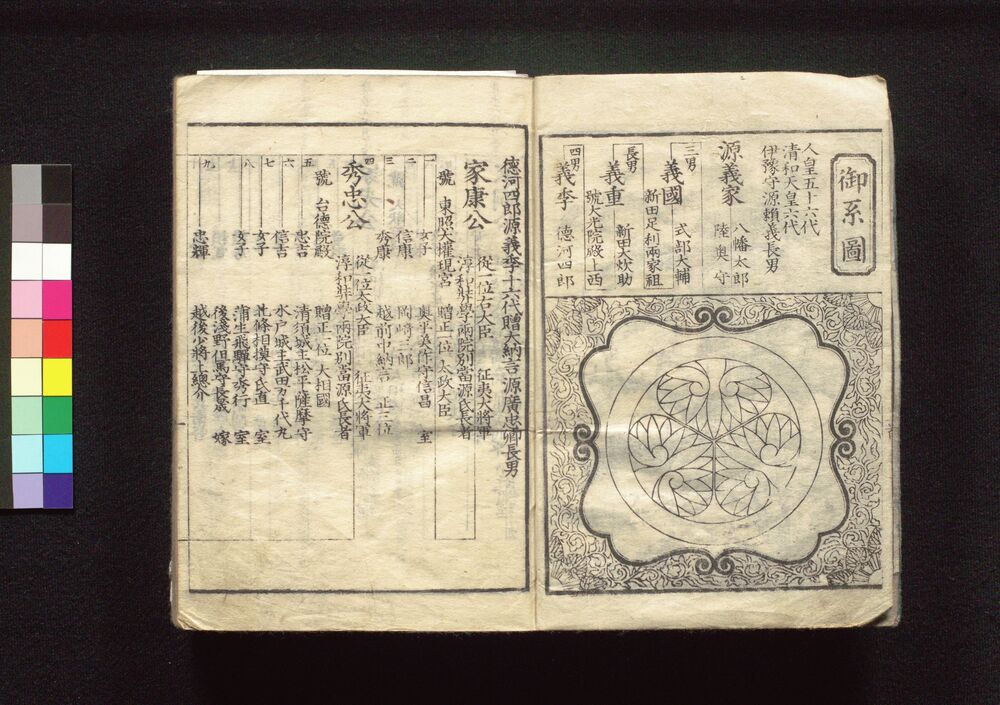 御系圖
人皇五十六代
清和天皇六代
伊豫守源頼義長男
源義家
八幡太郎
陸奥守
三男
義國
式部大輔
新田足利両家祖
長男
義重
新田大炊助
號大光院殿上西
四男
義季
徳河四郎
徳河四郎源義季十六代贈大納言源廣忠卿長男
家康公
従一位右大臣 征夷大将軍
淳和弉學両院別當源氏長者
號 東照大權現宮 贈正一位太政大臣
一 女子 奥平美作守信昌 室
二 信康 岡崎三郎
三 秀康 越前中納言 正三位
四
秀忠公
従一位太政大臣 征夷大将軍
淳和弉學両院別當源氏長者
號 台徳院殿 贈正一位大相國
五 忠吉 清須城主松平薩摩守
六 信吉 水戸城主武田万千代丸
七 女子 北條相摸守氏直 室
八 女子 蒲生飛騨守秀行 室
後浅野但馬守長晟 嫁
九 忠輝 越後少将上總介